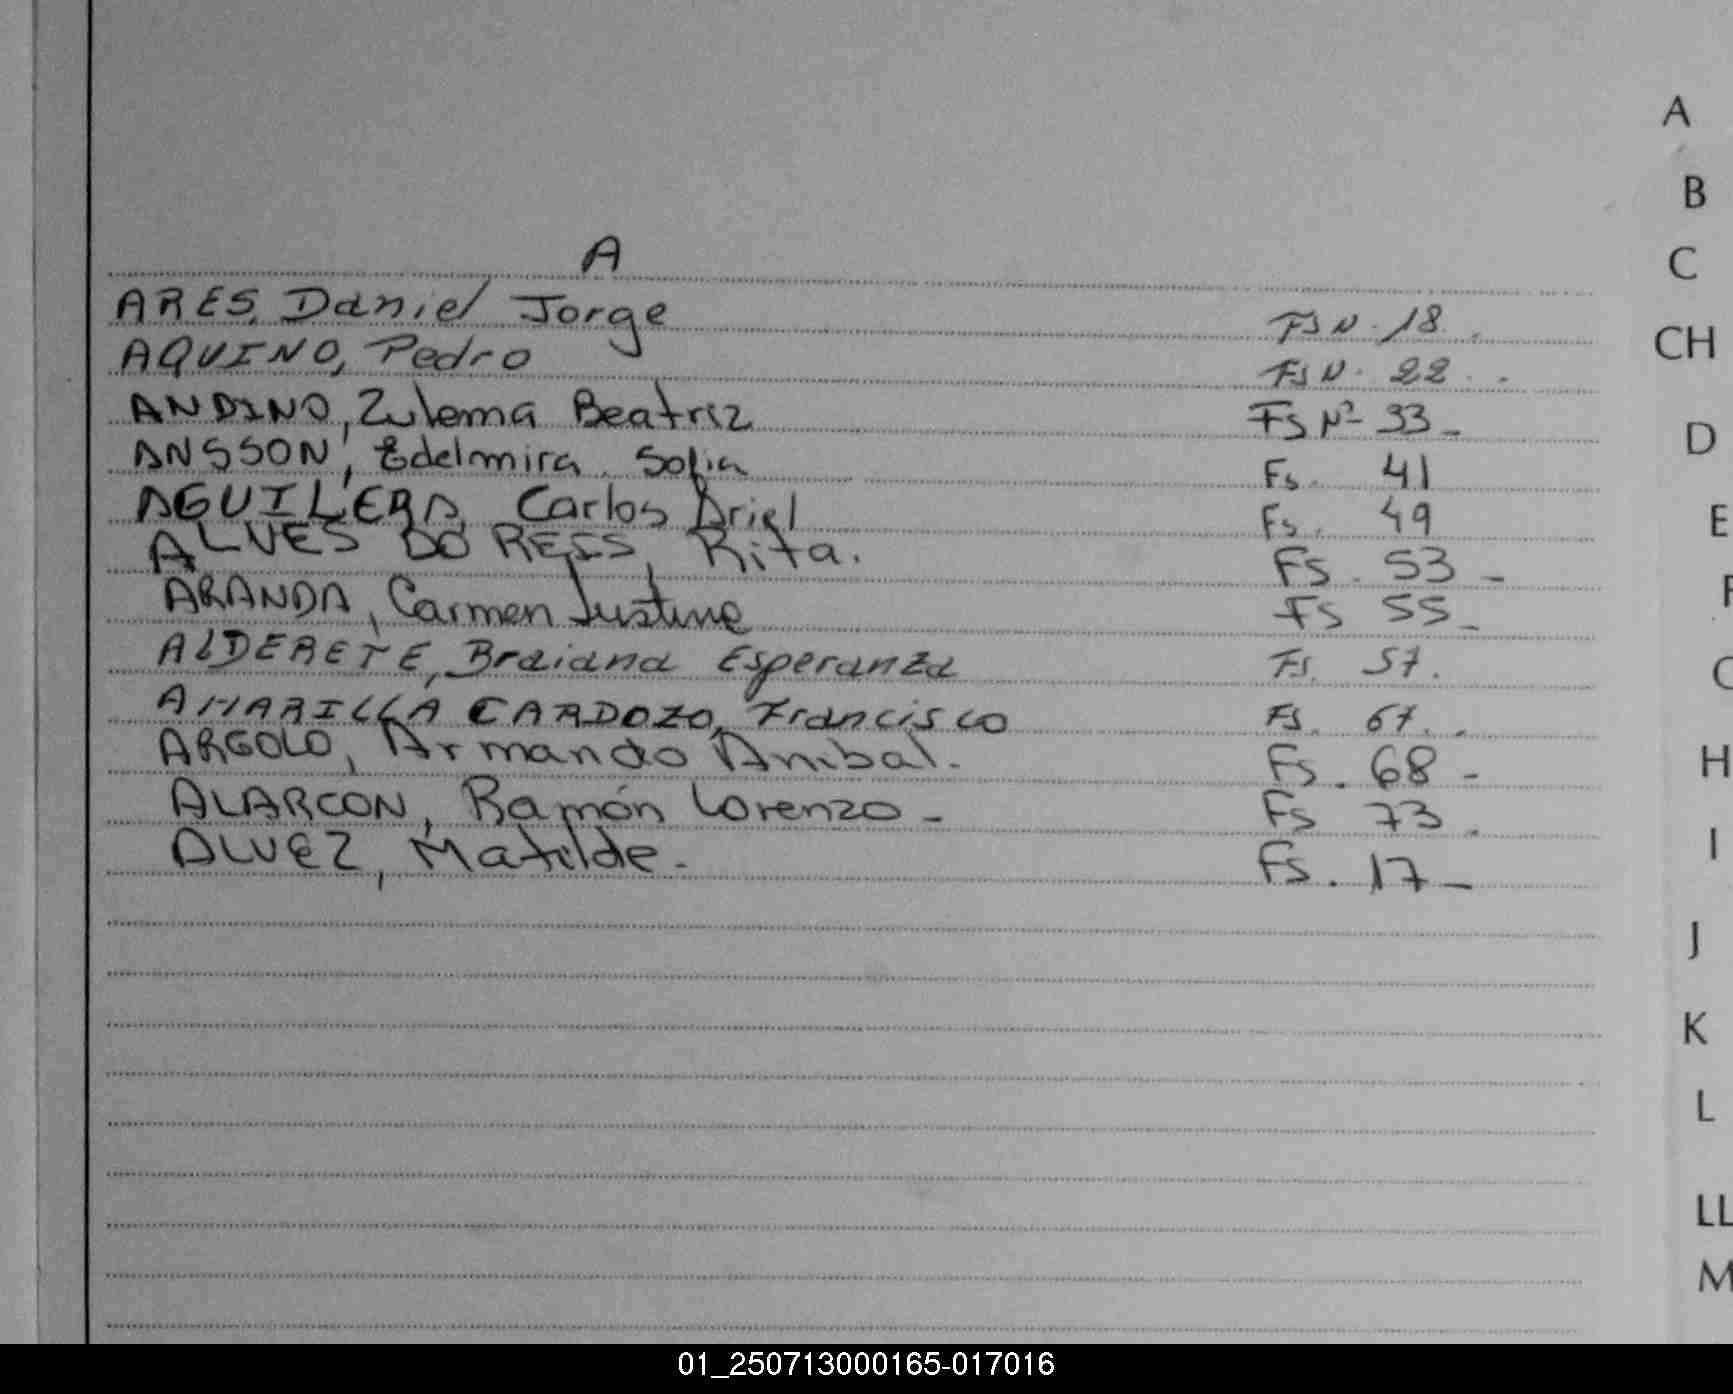 A
ARES, Daniel Jorge FS N. 18.
AQUINO, Pedro FS N. 22
ANDINO, Zulema Beatriz Fs Nº 33_
ANSSON, Edelmira Sofia Fs. 41
AGUILERA, Carlos Ariel Fs. 49
ALVES DO REIS, Rita. Fs. 53_
ARANDA, Carmen Justina Fs 55_
ALDERETE, Braiana Esperanza Fs. 57.
AMARILLA CARDOZO, Francisco Fs. 67.
ARGOLO, Armando Anibal. Fs. 68_
ALARCON, Ramón Lorenzo_ Fs 73.
ALVEZ, Matilde. Fs. 17_
A
B
C
CH
D
E
F
G
H
I
J
K
L
LL
M
01_250713000165-017016